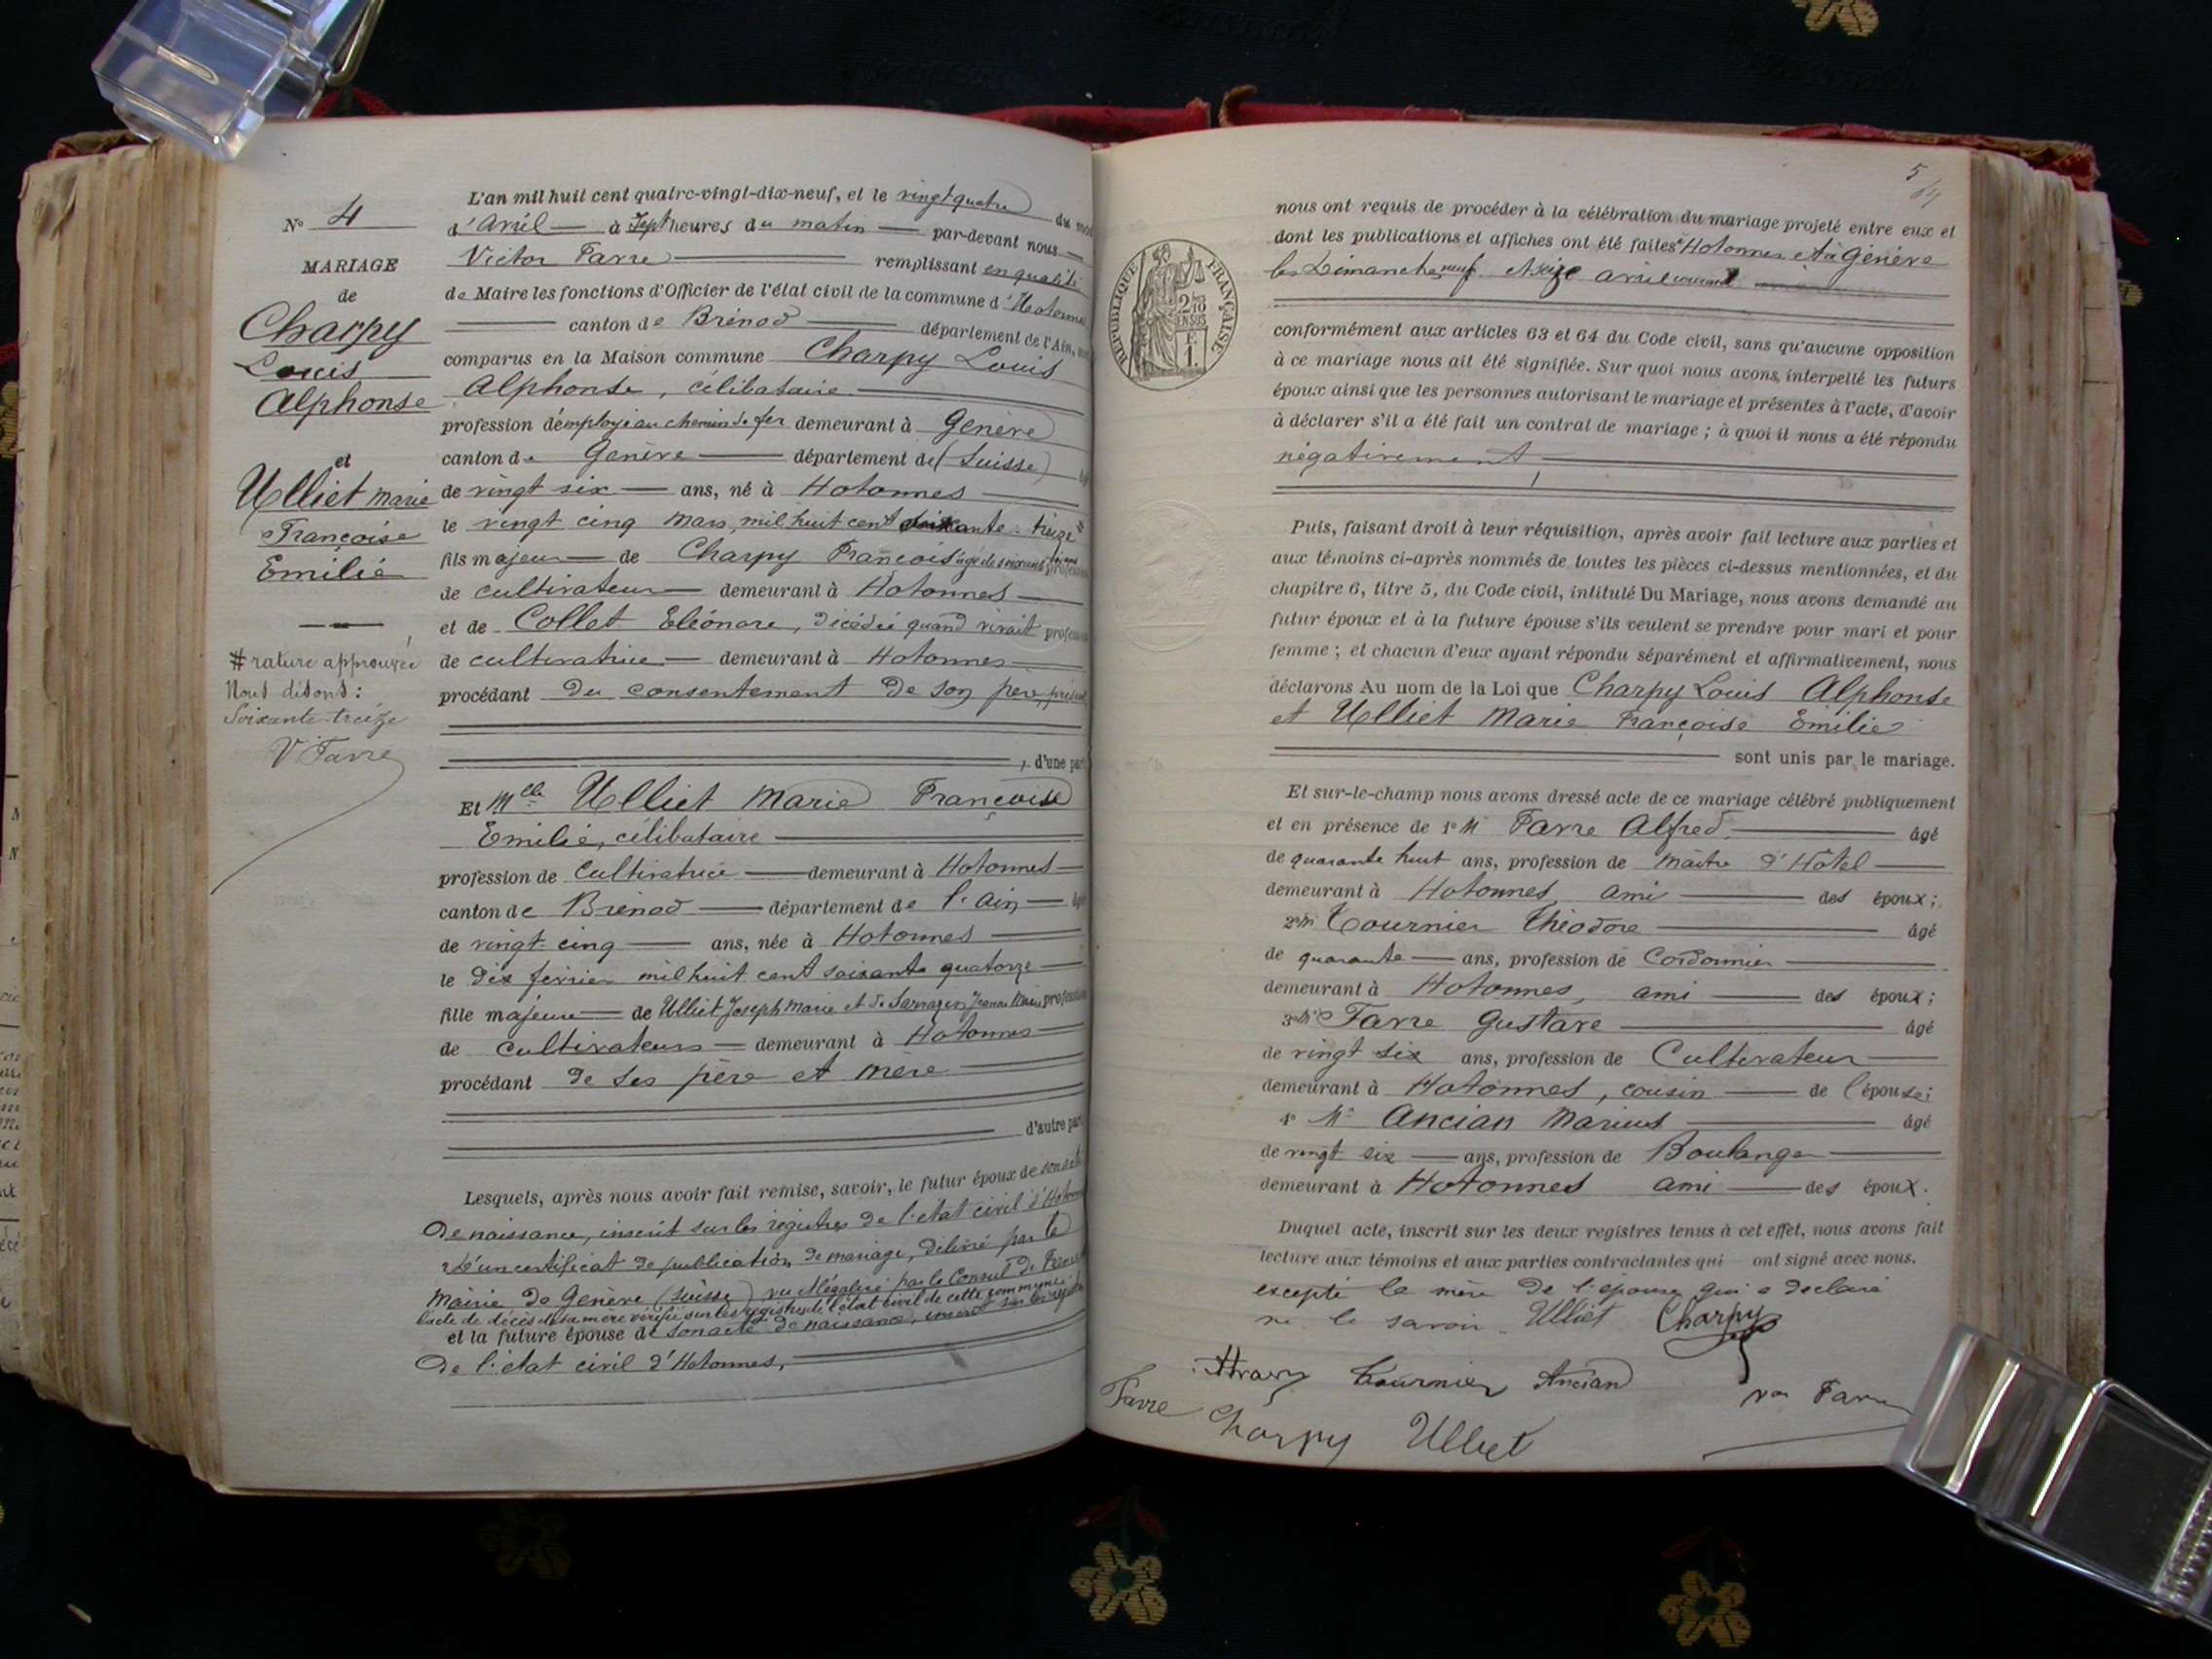 N° 4
MARIAGE
de
Charpy
Louis
Alphonse
et
Ulliet Marie
Françoise
Emilie
# rature approuvée
Nous disons :
Soixante-treize
V. Favre
L'an mil huit cent quatre-vingt-dix-neuf, et le vingt quatre du mois
d'Avril à sept heures du matin par-devant nous
Victor Favre remplissant en qualité
de Maire les fonctions d'Officier de l'état civil de la commune d'Hotonnes
canton de Brénod département de l'Ain, sont
comparus en la Maison commune Charpy Louis
Alphonse, célibataire
profession d'employé au chemin de fer demeurant à Genève
canton de Genève département de (Suisse)
de vingt six ans, né à Hotonnes
le vingt cinq mars, mil huit cent soixante-treize #
fils majeur de Charpy François âgé de soixante profession
de cultivateur demeurant à Hotonnes
et de Collet Eléonore, décédée quand vivait profession
de cultivatrice demeurant à Hotonnes
procédant du consentement de son père, présent
, d'une part
Et Melle Ulliet Marie Françoise
Emilie, célibataire
profession de Cultivatrice demeurant à Hotonnes
canton de Brénod département de l'Ain âgé
de vingt cinq ans, née à Hotonnes
le dix février mil huit cent soixante quatorze
fille majeure de Ulliet Joseph Marie et de Sarrazin Jeanne Marie profession
de cultivateurs demeurant à Hotonnes
procédant de ses père et mère
d'autre part
Lesquels, après nous avoir fait remise, savoir, le futur époux de son acte
de naissance, inscrit sur les registres de l'état civil d'Hotonnes
d'un certificat de publication de mariage, délivré par la
Mairie de Genève (Suisse) vu et légalisé par le Consul de France
l'acte de décès de sa mère vérifié sur les registres de l'état civil de cette commune;
et la future épouse de son acte de naissance, inscrit sur les registres
de l'état civil d'Hotonnes,
5
nous ont requis de procéder à la célébration du mariage projeté entre eux et
dont les publications et affiches ont été faites à Hotonnes et à Genève
les Dimanches neuf et seize avril courant
RÉPUBLIQUE FRANÇAISE
2/10 EN SUS
conformément aux articles 63 et 64 du Code civil, sans qu'aucune opposition
à ce mariage nous ait été signifiée. Sur quoi nous avons interpellé les futurs
époux ainsi que les personnes autorisant le mariage et présentes à l'acte, d'avoir
à déclarer s'il a été fait un contrat de mariage ; à quoi il nous a été répondu
négativement
Puis, faisant droit à leur réquisition, après avoir fait lecture aux parties et
aux témoins ci-après nommés de toutes les pièces ci-dessus mentionnées, et du
chapitre 6, titre 5, du Code civil, intitulé Du Mariage, nous avons demandé au
futur époux et à la future épouse s'ils veulent se prendre pour mari et pour
femme ; et chacun d'eux ayant répondu séparément et affirmativement, nous
déclarons Au nom de la Loi que Charpy Louis Alphonse
et Ulliet Marie Françoise Emilie
sont unis par le mariage.
Et sur-le-champ nous avons dressé acte de ce mariage célébré publiquement
et en présence de 1° M Favre Alfred âgé
de quarante huit ans, profession de Maître d'Hôtel
demeurant à Hotonnes, ami des époux;
2° M Tournier Théodore âgé
de quarante ans, profession de Cordonnier
demeurant à Hotonnes, ami des époux;
3° M Favre Gustave âgé
de vingt six ans, profession de Cultivateur
demeurant à Hotonnes, cousin de l'épouse;
4° M Ancian Marius âgé
de vingt six ans, profession de Boulanger
demeurant à Hotonnes ami des époux.
Duquel acte, inscrit sur les deux registres tenus à cet effet, nous avons fait
lecture aux témoins et aux parties contractantes qui ont signé avec nous.
excepté la mère de l'épouse qui a déclaré
ne le savoir. Ulliet Charpy
Tournier Ancian Vor Favre
Favre Charpy Ulliet